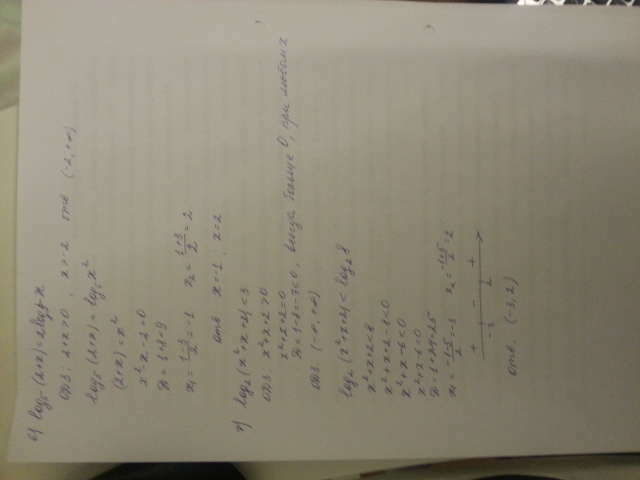 в) log₅(2+x)=2log₅x
одз: 2+x>0, x>-2 отв (-2,+∞)
log₅(2+x)=log₅x²
(2+x)=x²
x²-x-2=0
D=1+8=9
x₁=(1-3)/2=-1 x₂=(1+3)/2=2
отв x=-1; x=2
г) log₂(x²+x+2)<3
одз: x²+x+2>0
x²+x+2=0
D=1-8=-7<0, всегда больше 0, при любых x
одз (-∞,+∞)
log₂(x²+x+2)<log₂8
x²+x+2<8
x²+x+2-8<0
x²+x-6<0
x²+x-6=0
D=1+24=25
x₁=(-1-5)/2=-3 x₂=(-1+5)/2=2
+ - +
-3 2
отв. (-3,2)